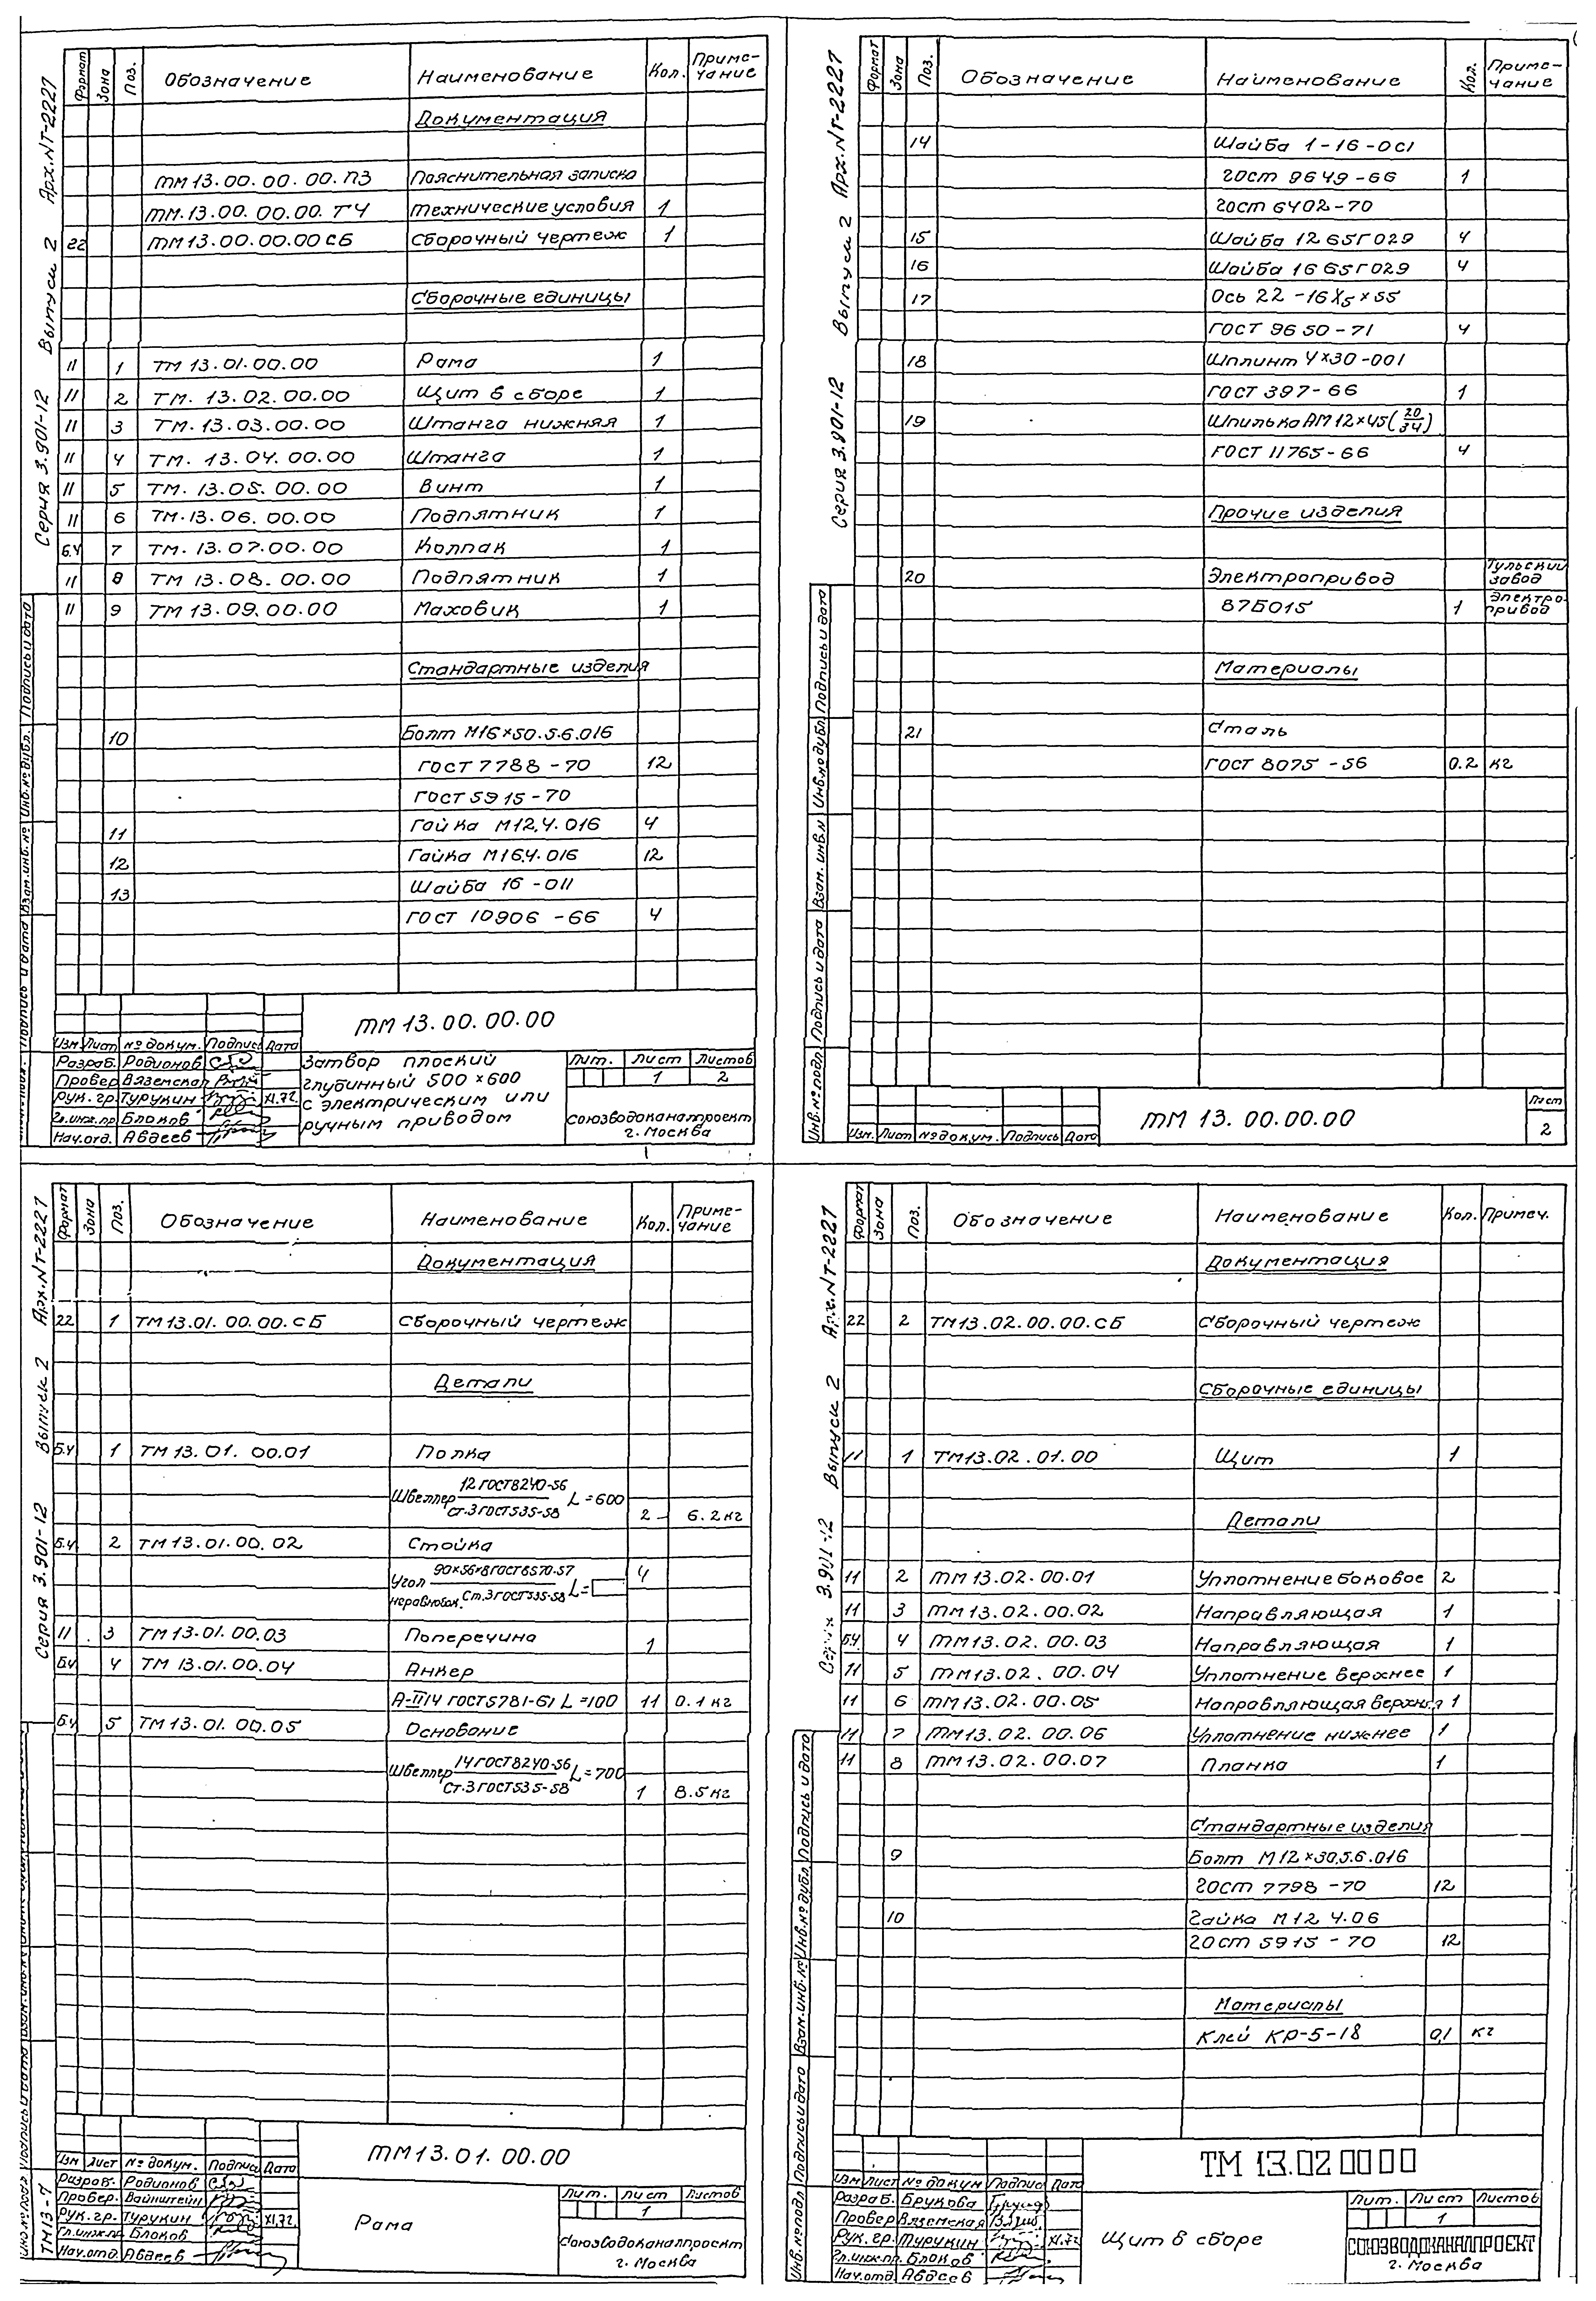 Серия 3.901-12 Выпуск 2 Арх.№Т-2227
Формат Зона Поз. Обозначение Наименование Кол. Примечание
Документация
ТМ13.00.00.00.ПЗ Пояснительная записка
ТМ.13.00.00.00.ТЧ Технические условия 1
22 ТМ13.00.00.00СБ Сборочный чертеж 1
Сборочные единицы
11 1 ТМ13.01.00.00 Рама 1
11 2 ТМ.13.02.00.00 Щит в сборе 1
11 3 ТМ.13.03.00.00 Штанга нижняя 1
11 4 ТМ.13.04.00.00 Штанга 1
11 5 ТМ.13.05.00.00 Винт 1
11 6 ТМ.13.06.00.00 Подпятник 1
Б.Ч 7 ТМ.13.07.00.00 Колпак 1
11 8 ТМ 13.08.00.00 Подпятник 1
11 9 ТМ 13.09.00.00 Маховик 1
Стандартные изделия
10 Болт М16×50.5.6.016
ГОСТ 7788-70 12
ГОСТ 5915-70
11 Гайка М12.4.016 4
12 Гайка М16.4.016 12
13 Шайба 16-011
ГОСТ 10906-66 4
ТМ 13.00.00.00
Изм. Лист № докум. Подпись Дата
Разраб. Родионов
Провер. Вяземская
Рук. гр. Турукин XI.72.
Гл.инж.пр. Блоков
Нач.отд. Авдеев
Затвор плоский
глубинный 500×600
с электрическим или
ручным приводом
Лит. Лист Листов
1 2
Союзводоканалпроект
г. Москва
Серия 3.901-12 Выпуск 2 Арх.№Т-2227
Формат Зона Поз. Обозначение Наименование Кол. Примечание
14 Шайба 1-16-0С1
ГОСТ 9649-66 1
ГОСТ 6402-70
15 Шайба 12 65Г029 4
16 Шайба 16 65Г029 4
17 Ось 22-16Х5×55
ГОСТ 9650-71 4
18 Шплинт 4×30-001
ГОСТ 397-66 1
19 Шпилька АМ12×45(20/34)
ГОСТ 11765-66 4
Прочие изделия
20 Электропривод Тульский завод
87Б015 1 Электропривод
Материалы
21 Сталь
ГОСТ 8075-56 0.2 кг
Инв.№ подл. Подпись и дата Взам. инв.№ Инв.№дубл. Подпись и дата
Изм. Лист № докум. Подпись Дата
ТМ 13.00.00.00
Лист
2
Серия 3.901-12 Выпуск 2 Арх.№Т-2227
Формат Зона Поз. Обозначение Наименование Кол. Примечание
Документация
22 1 ТМ13.01.00.00.СБ Сборочный чертеж
Детали
Б.Ч 1 ТМ13.01.00.01 Полка
Швеллер 12 ГОСТ8240-56 / Ст.3 ГОСТ535-58 L=600 2 6.2 кг
Б.Ч 2 ТМ13.01.00.02 Стойка
Угол неравнобок. 90×56×8 ГОСТ8510-57 / Ст.3 ГОСТ535-58 L= 4
11 3 ТМ13.01.00.03 Поперечина 1
Б.Ч 4 ТМ 13.01.00.04 Анкер
А-II14 ГОСТ5781-61 L=100 11 0.1 кг
Б.Ч 5 ТМ13.01.00.05 Основание
Швеллер 14 ГОСТ8240-56 / Ст.3 ГОСТ535-58 L=700 1 8.5 кг
ТМ13.01.00.00
Изм Лист № докум. Подпись Дата
Разраб. Родионов
Провер. Вайнштейн
Рук. гр. Турукин XI.72.
Гл.инж.пр. Блоков
Нач.отд Авдеев
ТМ13-7
Рама
Лит. Лист Листов
1
Союзводоканалпроект
г. Москва
Серия 3.901-12 Выпуск 2 Арх.№Т-2227
Формат Зона Поз. Обозначение Наименование Кол. Примеч.
Документация
22 2 ТМ13.02.00.00.СБ Сборочный чертеж
Сборочные единицы
11 1 ТМ13.02.01.00 Щит 1
Детали
11 2 ТМ13.02.00.01 Уплотнение боковое 2
11 3 ТМ13.02.00.02 Направляющая 1
Б.Ч 4 ТМ13.02.00.03 Направляющая 1
11 5 ТМ13.02.00.04 Уплотнение верхнее 1
11 6 ТМ13.02.00.05 Направляющая верхняя 1
11 7 ТМ13.02.00.06 Уплотнение нижнее 1
11 8 ТМ13.02.00.07 Планка 1
Стандартные изделия
9 Болт М12×30.5.6.016
ГОСТ 7798-70 12
10 Гайка М12 4.06
ГОСТ 5915-70 12
Материалы
Клей КР-5-18 0,1 кг
Инв.№ подл Подпись и дата Взам.инв.№ Инв.№дубл. Подпись и дата
ТМ 13.02 00 00
Изм Лист № докум Подпись Дата
Разраб. Брукова
Провер Вяземская
Рук. гр. Турукин XI.72
Гл.инж.пр. Блоков
Нач.отд. Авдеев
Щит в сборе
Лит. Лист Листов
1
СОЮЗВОДОКАНАЛПРОЕКТ
г. Москва